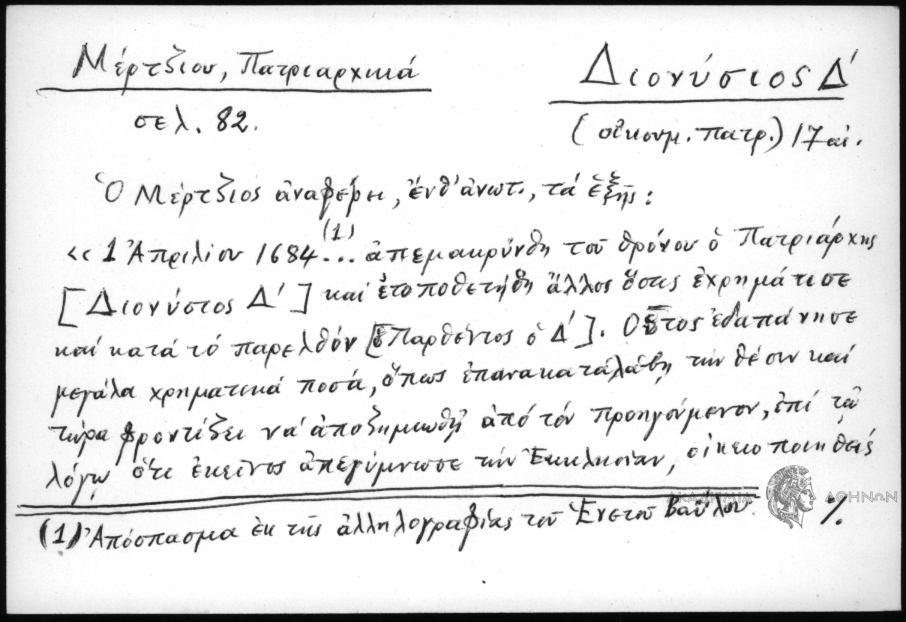 Μέρτζιου, Πατριαρχικά
σελ. 82.
Διονύσιος Δ'
(οἰκουμ. πατρ.) 17 αἰ.
Ὁ Μέρτζιος ἀναφέρει, ἔνθ' ἀνωτ., τά ἑξῆς:
«1 Ἀπριλίου 1684 (1) ... ἀπεμακρύνθη τοῦ θρόνου ὁ Πατριάρχης
[Διονύσιος Δ'] καί ἐτοποθετήθη ἄλλος ὅστις ἐχρημάτισε
καί κατά τό παρελθόν [ὁ Παρθένιος ὁ Δ']. Οὗτος ἐδαπάνησε
μεγάλα χρηματικά ποσά, ὅπως ἐπανακαταλάβῃ τήν θέσιν καί
τώρα φροντίζει νά ἀποζημιωθῇ ἀπό τόν προηγούμενον, ἐπί τῷ
λόγῳ ὅτι ἐκεῖνος ἀπεγύμνωσε τήν Ἐκκλησίαν, οἰκειοποιηθείς
ΑΚΑΔΗΜΙΑ ΑΘΗΝΩΝ
(1) Ἀπόσπασμα ἐκ τῆς ἀλληλογραφίας τοῦ Ἐνετοῦ Βαΐλου. ./.